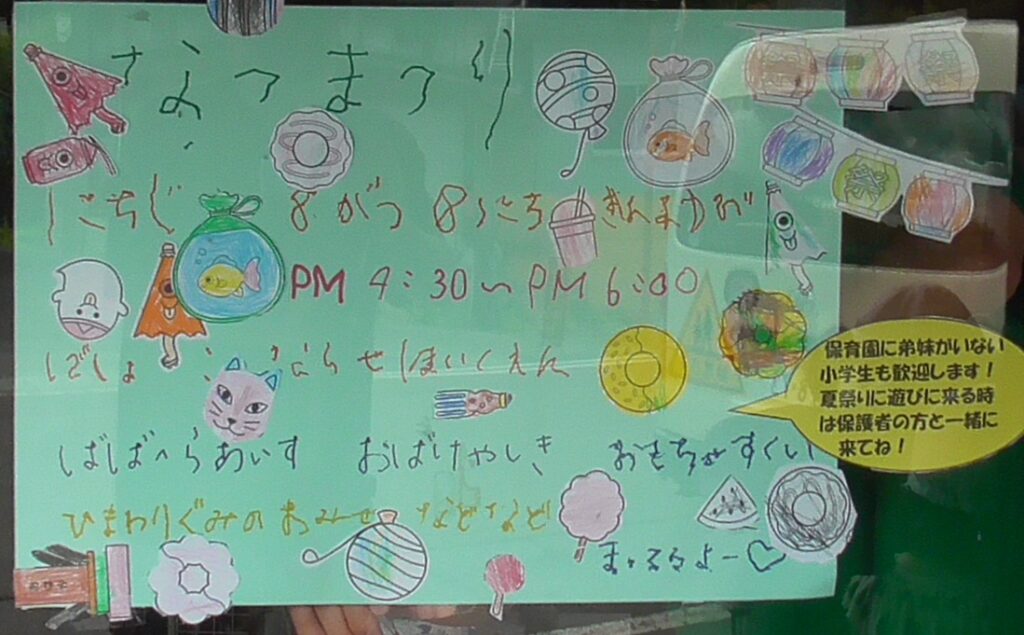 なつまつり
にちじ 8がつ8にち きんようび
PM 4:30〜PM 6:00
ばしょ ならせほいくえん
ばばへらあいす おばけやしき おもちゃすくい
ひまわりぐみのおみせ などなど
まってるよー♡
保育園に弟妹がいない
小学生も歓迎します！
夏祭りに遊びに来る時
は保護者の方と一緒に
来てね！
祭
祭